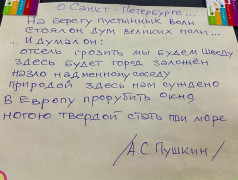 О Санкт-Петербурге...
На берегу пустынных волн
Стоял он дум великих полн...
И думал он:
отсель грозить мы будем шведу
здесь будет город заложен
назло надменному соседу
природой здесь нам суждено
В Европу прорубить окно
ногою твердой стать при море
/А.С. Пушкин/